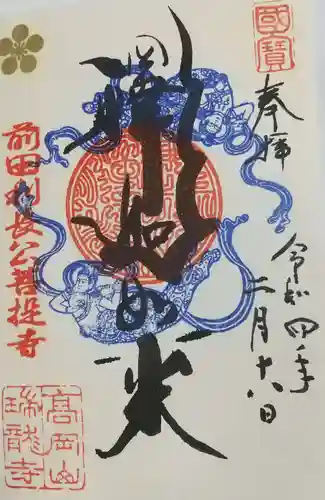 國寶
奉拝
令和四年
二月十八日
釋迦如来
前田利長公菩提寺
高岡山
瑞龍寺